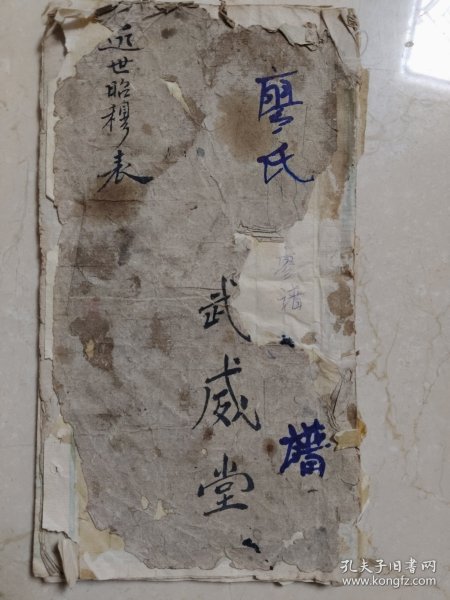 廖氏
譜
武威堂
近世昭穆表
孔夫子旧书网
www.kongfz.com